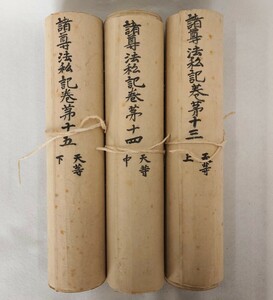 諸尊法私記巻第十三
天等
上
諸尊法私記巻第十四
天等
中
諸尊法私記巻第十五
天等
下